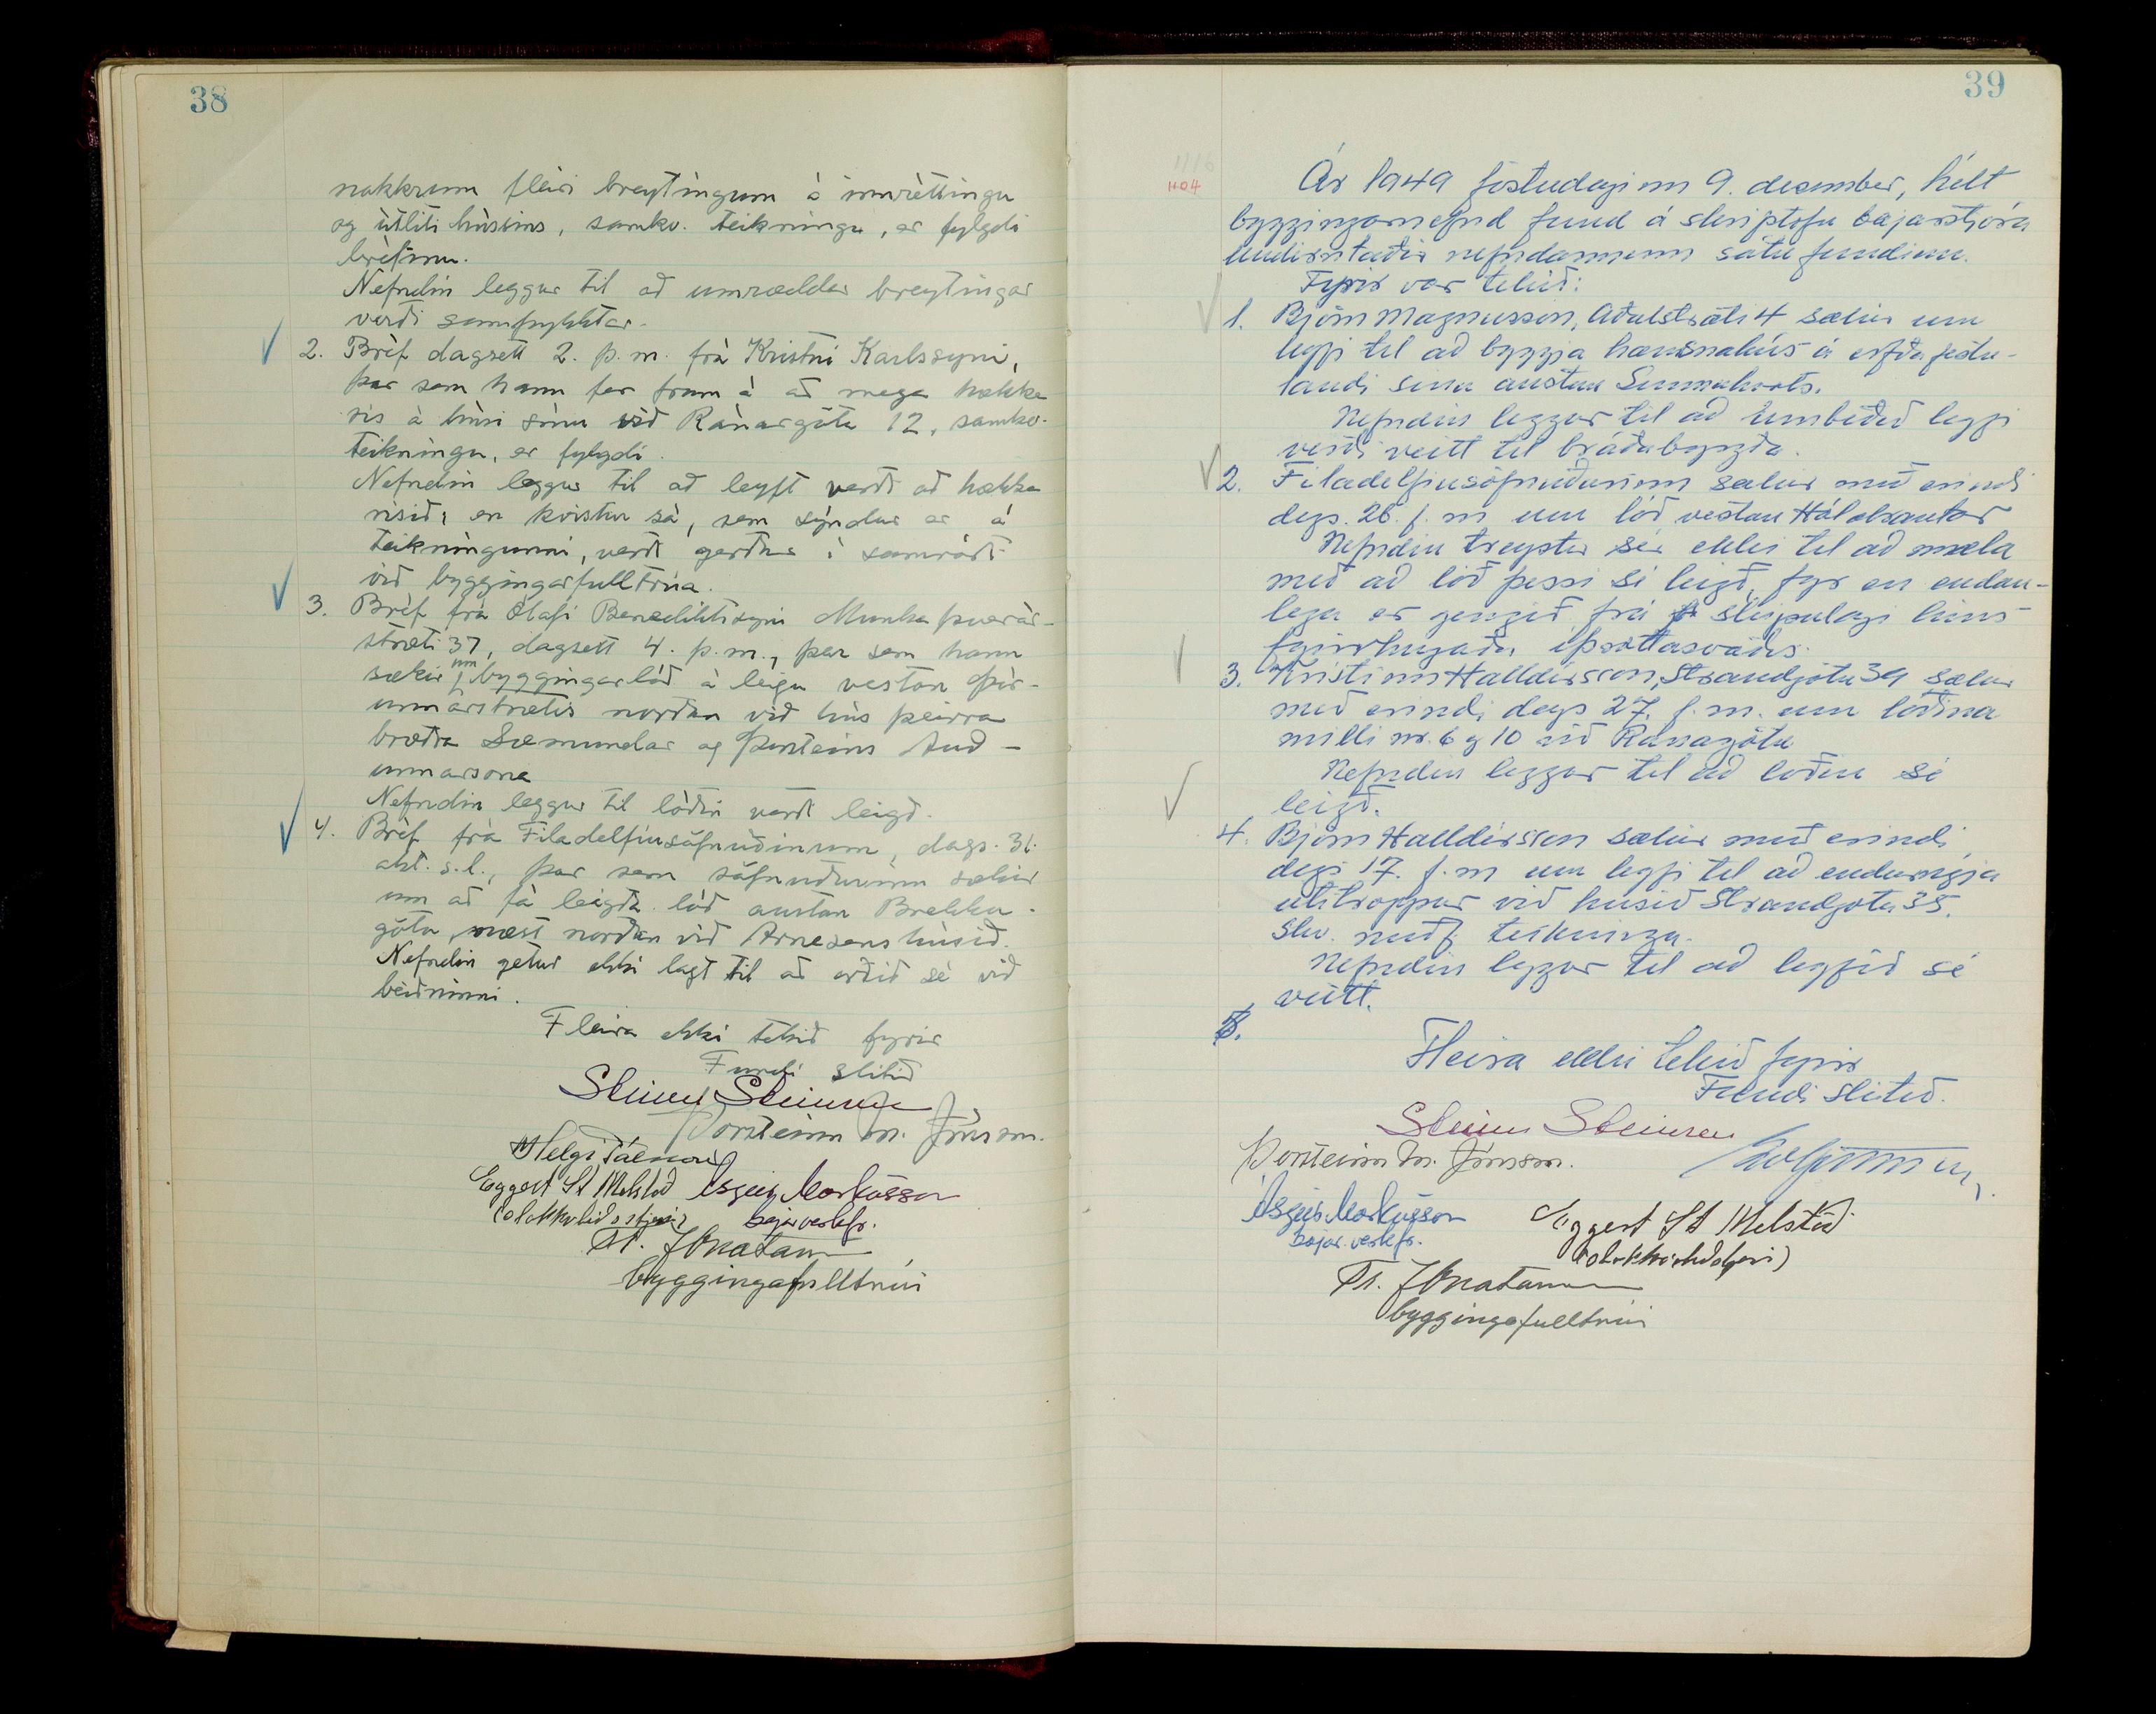 38
nokkrum fleiri breytingum á innréttingu
og útliti hússins, samkv. teikningu, er fylgdi
bréfinu.
Nefndin leggur til að umræddar breytingar
verði samþykktar.
2. Bréf dagsett 2. þ.m. frá Kristni Karlssyni,
þar sem hann fer fram á að mega hækka
ris á húsi sínu við Ránargötu 12, samkv.
teikningu, er fylgdi.
Nefndin leggur til að leyft verði að hækka
risið, en kvistur sá, sem sýndur er á
teikningunni, verði gerður í samráði
við byggingarfulltrúa.
3. Bréf frá Ólafi Benediktssyni Munkaþverár-
stræti 37, dagsett 4. þ.m., þar sem hann
sækir um byggingarlóð á leigu vestan Þór-
unnarstrætis norðan við hús þeirra
bræðra Sæmundar og Þorsteins Auð-
unnarsona
Nefndin leggur til lóðin verði leigð.
4. Bréf frá Filadelfíusöfnuðinum, dags. 31.
okt. s.l., þar sem söfnuðurinn sækir
um að fá leigða lóð austan Brekku-
götu, næst norðan við Arnesens húsið.
Nefndin getur ekki lagt til að orðið sé við
beiðninni.
Fleira ekki tekið fyrir
Fundi slitið
Steinn Steinsen
Þorsteinn M. Jónsson.
Helgi Pálsson
Eggert St Melstað Ásgeir Markússon
(slökkviliðsstjóri) bæjarverkfr.
Tr. Jónatansson
byggingafulltrúi
39
1104
Ár 1949 föstudaginn 9. desember, hélt
byggingarnefnd fund á skriptofu bæjarstjóra
undirritaðir nefndarmenn sátu fundinn.
Fyrir var tekið:
1. Björn Magnusson, Aðalstræti 4 sækir um
leyfi til að byggja hænsnahús á erfðafestu-
landi sínu austan Sunnuhvols.
Nefndin leggur til að umbeðið leyfi
verði veitt til bráðabyrgða.
2. Filadelfiusöfnuðurinn sækir með erindi
dags. 26. f.m um lóð vestan Hólabrautar
Nefndin treystir sér ekki til að mæla
með að lóð þessi sé leigð, fyr en endan-
lega er gengið frá skipulagi hins
fyrirhugaða íþróttasvæðis.
3. Kristinn Halldórsson, Strandgötu 39 sækir
með erindi dags 27. f.m. um lóðina
milli nr. 6 og 10 við Ránagötu
Nefndin leggur til að lóðin sé
leigð.
4. Björn Halldórsson sækir með erindi
dags 17. f.m um leyfi til að endurnýja
útitröppur við húsið Strandgötu 35.
skv. meðf. teikningu.
Nefndin leggur til að leyfið sé
veitt.
Fleira ekki tekið fyrir
Fundi slitið.
Steinn Steinsen
Þorsteinn M. Jónsson.
Ásgeir Markússon Eggert St Melstað
bæjarverkfr. (slökkviliðsstjóri)
Tr. Jónatansson
byggingafulltrúi